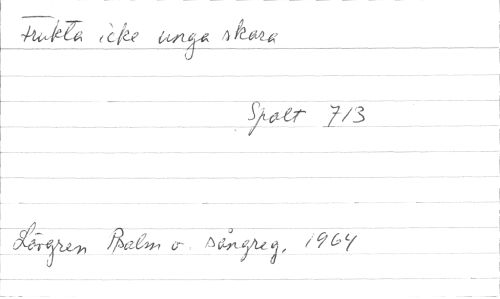 Frukta icke unga skara
Spalt 713
Lövgren Psalm o. sångreg. 1964